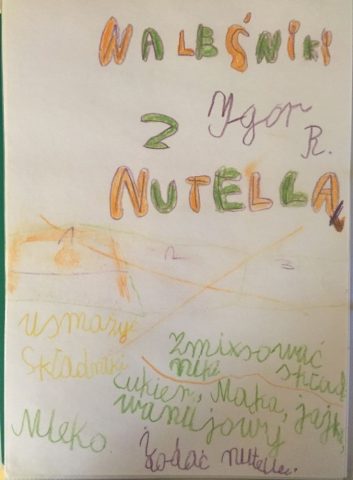 NALEŚNIKI
Z
Igor
R.
NUTELLĄ
1 2 3
usmażyć
Składniki
Zmixsować
skład
niki
cukier, Mąka, jajka,
wanilijowy
Mleko
Dodać nutelle.